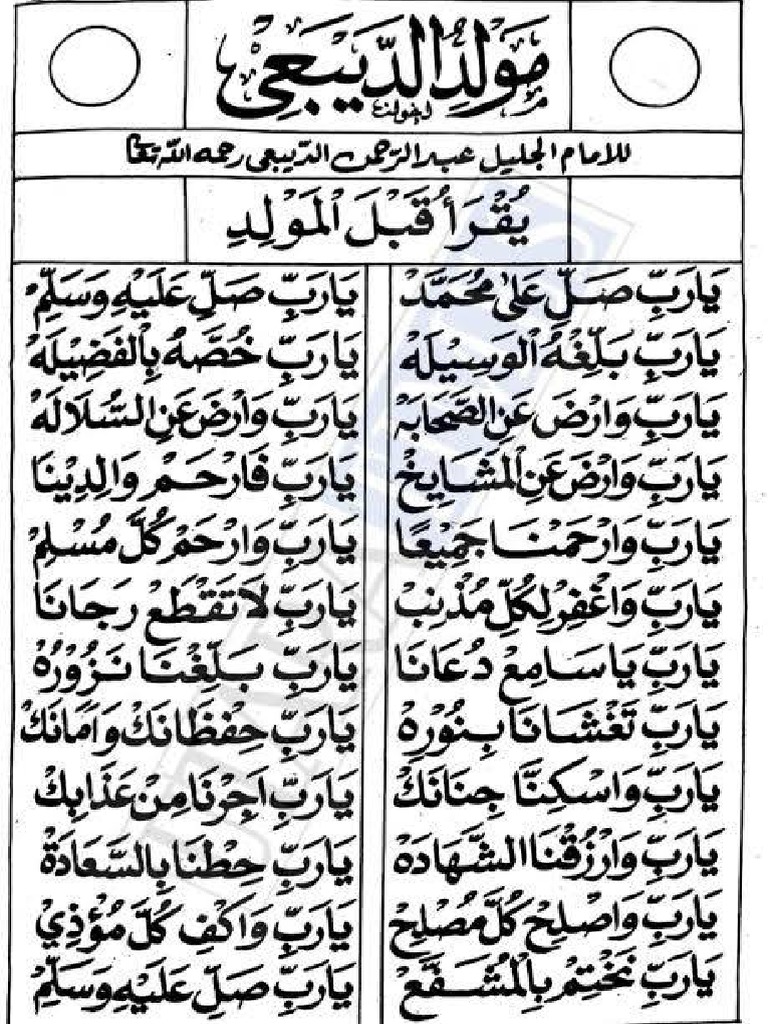 مَوْلِدُ الدِّيْبَعِيْ
للامام الجليل عبد الرّحمن الدّيبعي رحمه الله تعا
يُقْرَأُ قَبْلَ الْمَوْلِدِ
يَارَبِّ صَلِّ عَلىٰ مُحَمَّدْ يَارَبِّ صَلِّ عَلَيْهِ وَسَلِّمْ
يَارَبِّ بَلِّغْهُ الْوَسِيْلَهْ يَارَبِّ خُصَّهُ بِالْفَضِيْلَهْ
يَارَبِّ وَارْضَ عَنِ الصَّحَابَهْ يَارَبِّ وَارْضَ عَنِ السُّلَالَهْ
يَارَبِّ وَارْضَ عَنِ الْمَشَايِخْ يَارَبِّ فَارْحَمْ وَالِدِيْنَا
يَارَبِّ وَارْحَمْنَا جَمِيْعًا يَارَبِّ وَارْحَمْ كُلَّ مُسْلِمْ
يَارَبِّ وَاغْفِرْ لِكُلِّ مُذْنِبْ يَارَبِّ لَا تَقْطَعْ رَجَانَا
يَارَبِّ يَا سَامِعْ دُعَانَا يَارَبِّ بَلِّغْنَا نَزُوْرُهْ
يَارَبِّ تَغْشَانَا بِنُوْرِهْ يَارَبِّ حِفْظَانَكْ وَامَانَكْ
يَارَبِّ وَاسْكِنَّا جِنَانَكْ يَارَبِّ اَجِرْنَا مِنْ عَذَابِكْ
يَارَبِّ وَارْزُقْنَا الشَّهَادَهْ يَارَبِّ حِطْنَا بِالسَّعَادَةْ
يَارَبِّ وَاصْلِحْ كُلَّ مُصْلِحْ يَارَبِّ وَاكْفِ كُلَّ مُؤْذِيْ
يَارَبِّ نَخْتِمْ بِالْمُشَفَّعْ يَارَبِّ صَلِّ عَلَيْهِ وَسَلِّمْ